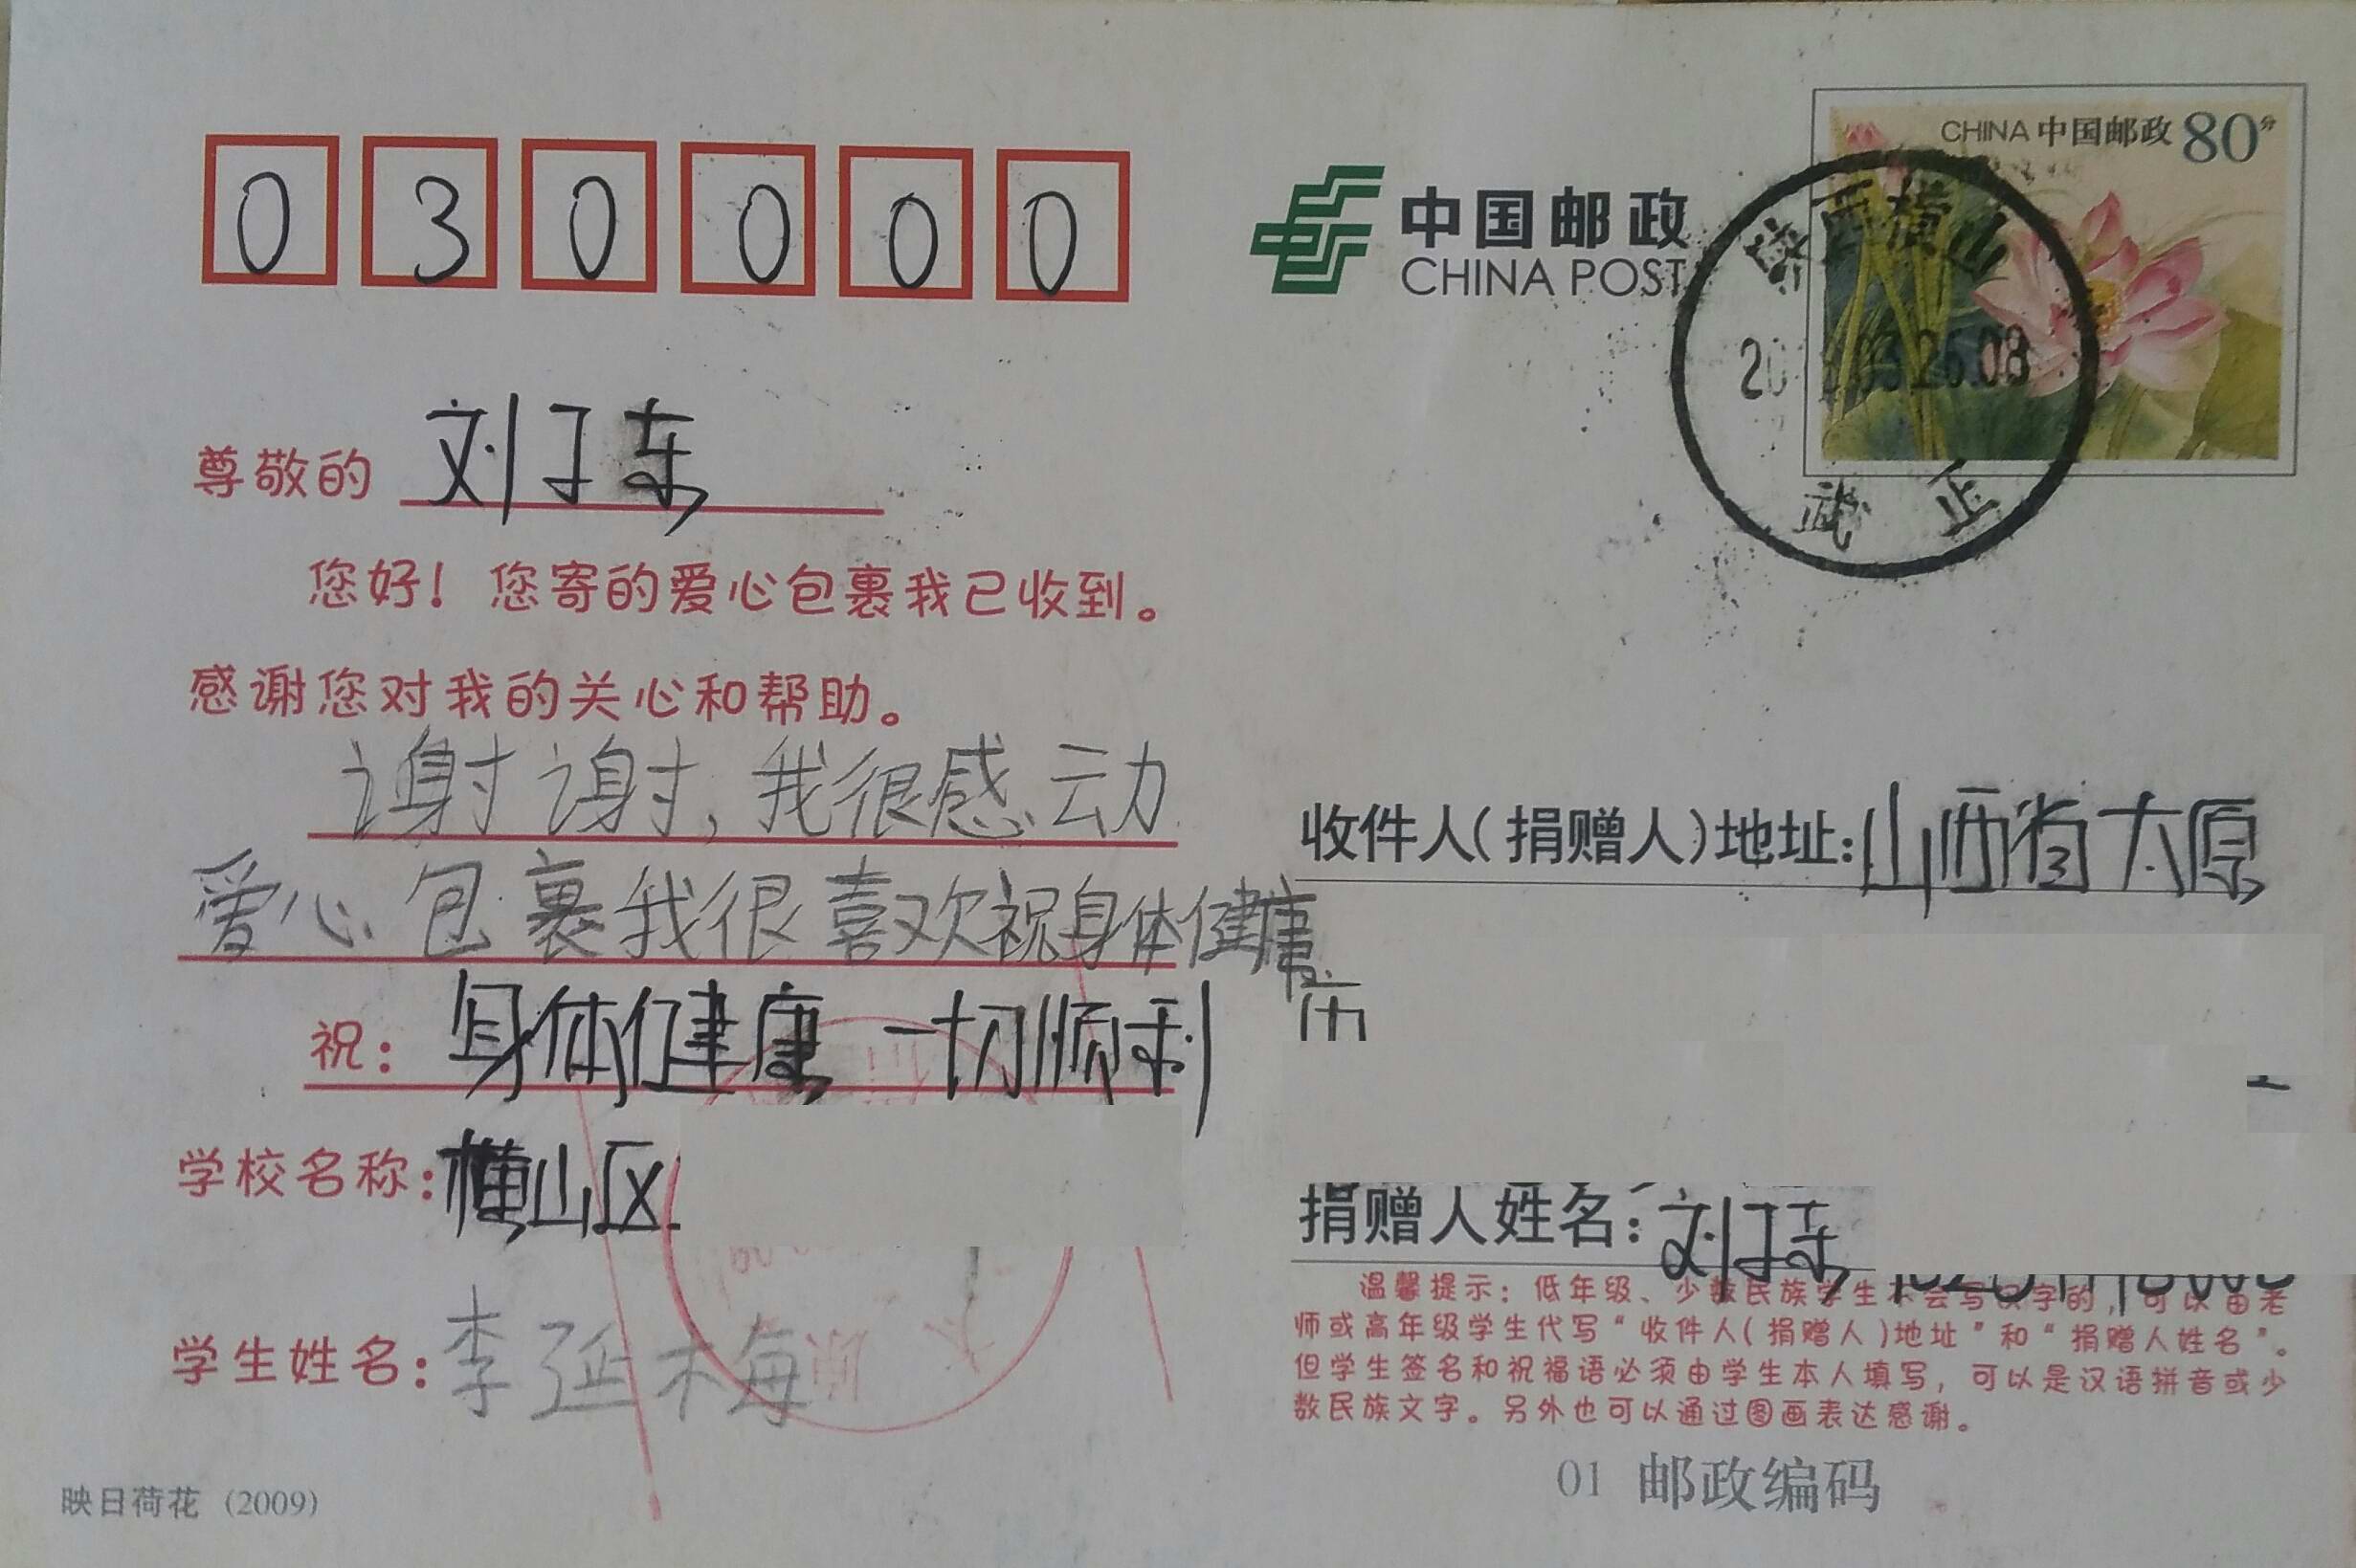 030000
中国邮政
CHINA POST
CHINA 中国邮政 80分
陕西横山
武 正
尊敬的 刘子东
您好！您寄的爱心包裹我已收到。
感谢您对我的关心和帮助。
谢谢，我很感动
爱心包裹我很喜欢祝身体健康
祝：身体健康 一切顺利
学校名称：横山区
学生姓名：李延梅
映日荷花 (2009)
收件人（捐赠人）地址：山西省太原
市
捐赠人姓名：刘子东
温馨提示：低年级、少数民族学生不会写汉字的，可以由老
师或高年级学生代写“收件人（捐赠人）地址”和“捐赠人姓名”。
但学生签名和祝福语必须由学生本人填写，可以是汉语拼音或少
数民族文字。另外也可以通过图画表达感谢。
01 邮政编码